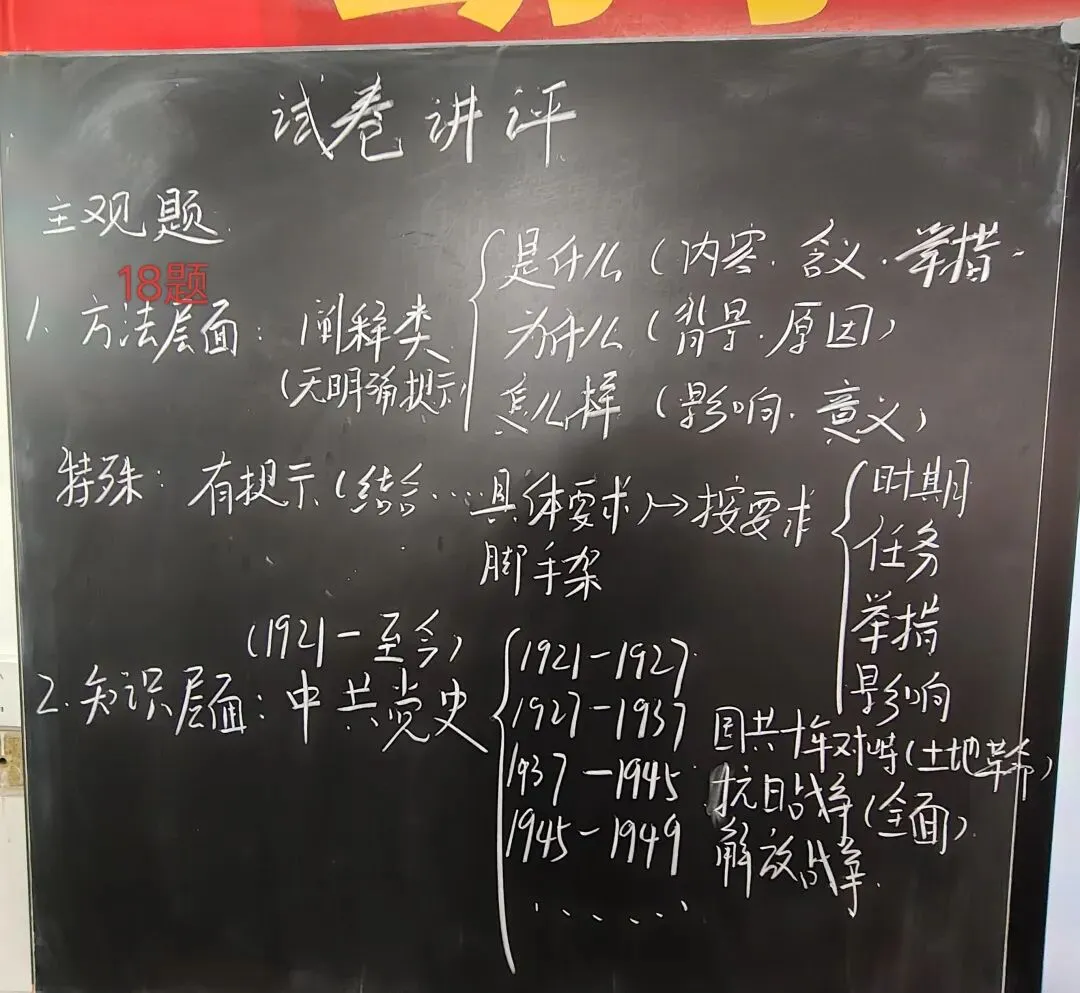 试卷讲评
主观题
18题
1. 方法层面：阐释类
(无明确提示)
是什么（内容. 含义. 举措.
为什么（背景. 原因）
怎么样（影响. 意义）
特殊：有提示（结合……具体要求）→按要求
脚手架
时期
任务
举措
影响
(1921－至今)
2. 知识层面：中共党史
1921－1927
1927－1937 国共十年对峙（土地革命）
1937－1945 抗日战争（全面）
1945－1949 解放战争
......